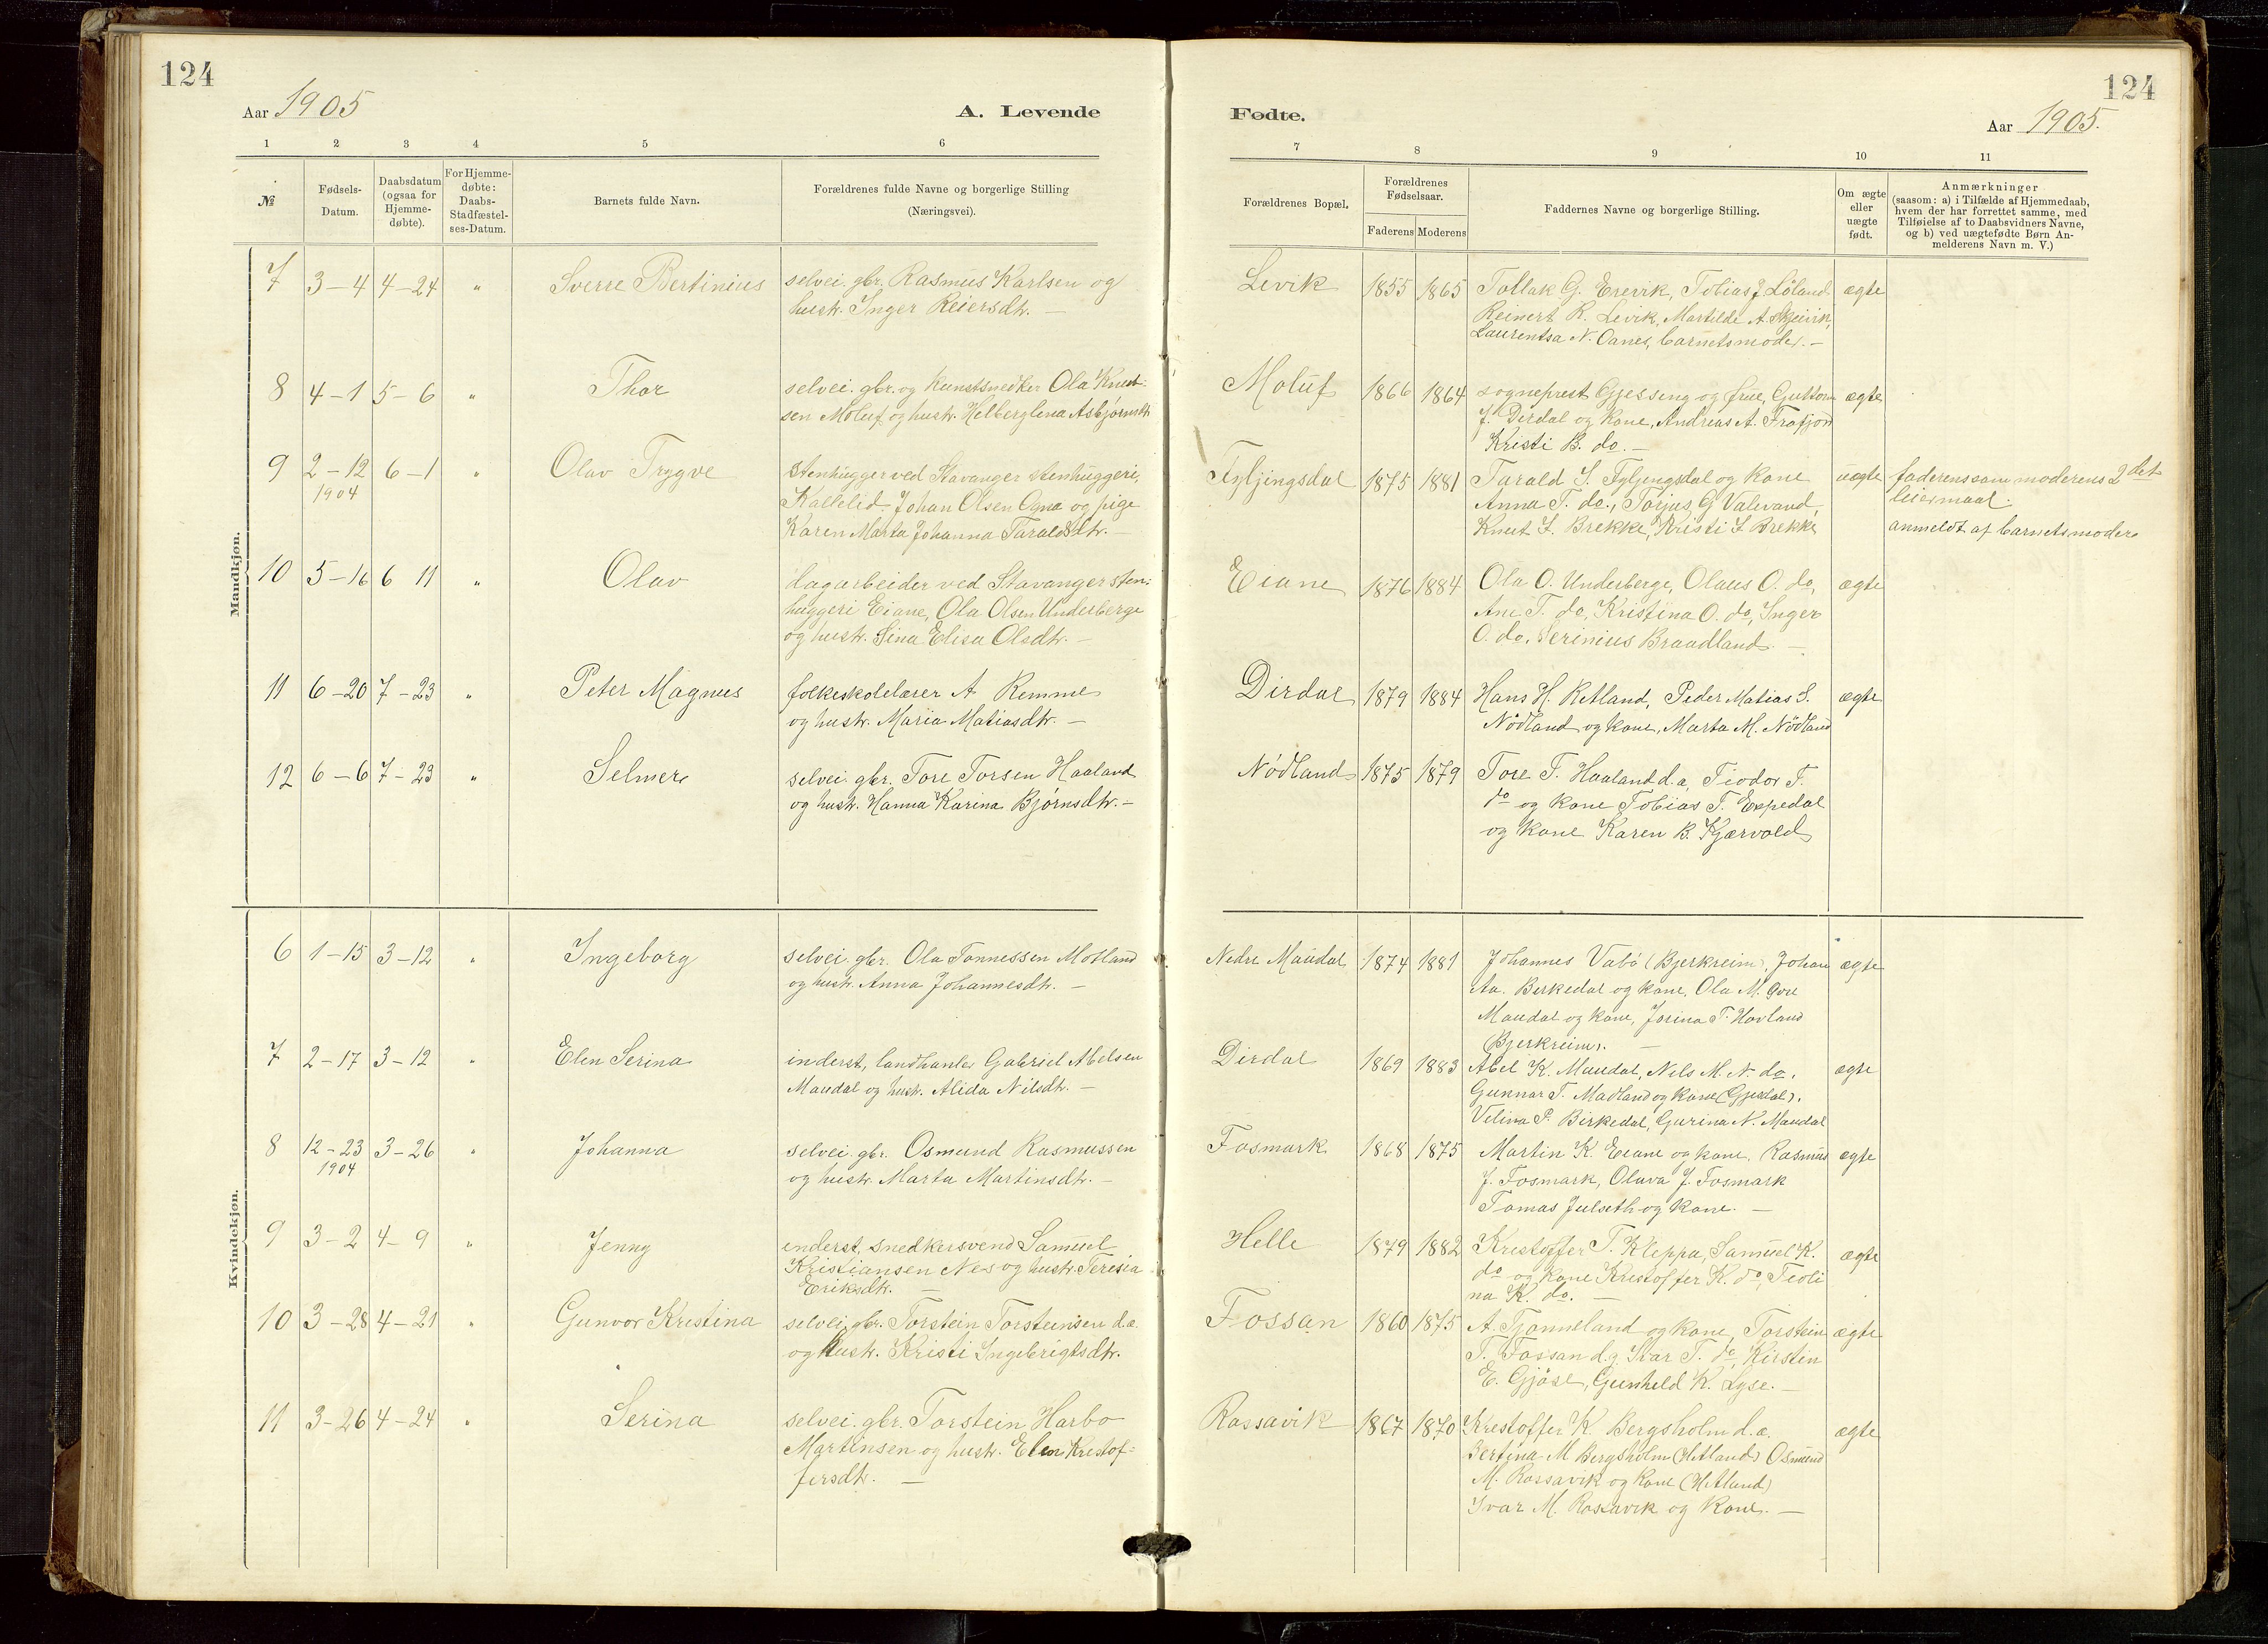 124
124
Aar 1905
A. Levende
Fødte.
Aar 1905.
1 2 3 4 5 6
7 8 9 10 11
№
Fødsels-
Datum.
Daabsdatum
(ogsaa for
Hjemme-
døbte).
For Hjemme-
døbte:
Daabs-
Stadfæstel-
ses-Datum.
Barnets fulde Navn.
Forældrenes fulde Navne og borgerlige Stilling
(Næringsvei).
Forældrenes Bopæl.
Forældrenes
Fødselsaar.
Faderens Moderens
Faddernes Navne og borgerlige Stilling.
Om ægte
eller
uægte
født.
Anmærkninger
(saasom: a) i Tilfælde af Hjemmedaab,
hvem der har forrettet samme, med
Tilføielse af to Daabsvidners Navne,
og b) ved uægtefødte Børn An-
melderens Navn m. V.)
Mandkjøn.
7 3-4 4-24 " Sverre Bertinius selvei. gbr. Rasmus Karlsen og
hustr. Inger Reiersdtr. —
Levik 1855 1865 Tollak G. Erevik, Tobias J. Løland ægte
Reinert R. Levik, Martilde A.
Laurentsa N. Oanes, barnets moder. —
8 4-1 5-6 " Thor selvei. gbr. og Kunstsnedker Ola Knut-
sen Moluf og hustr. Helberglena Asbjørnsdtr
Moluf 1866 1864 sogneprest Gjessing og frue, Guttorm ægte
J. Dirdal og kone, Andreas A. Frafjord
Kristi B. do. —
9 2-12 6-1 " Olav Trygve Stenhugger ved Stavanger stenhuggeri,
1904
Kallelid, Johan Olsen Ogna og pige
Karen Marta Johanna Taraldsdtr. —
Fyljingsdal 1875 1881 Tarald S. Fyljingsdal og kone uægte faderens som moderens 2det
Anna T. do., Torjus G Valevand, leiermaal.
Knut I. Brekke, Kristi I. Brekke anmeldt af barnets moder
10 5-16 6 11 " Olav dagarbeider ved Stavanger sten-
huggeri Eiane, Ola Olsen Underberge
og hustr. Sina Elisa Olsdtr. —
Eiane 1876 1884 Ola O. Underberge, Olaus O. do, ægte
Ane T. do, Kristina O. do, Inger
O. do, Serinius Braadland. —
11 6-20 7-23 " Peter Magnus folkeskolelærer A Remme
og hustr. Maria Matiasdtr. —
Dirdal 1879 1884 Hans H. Retland, Peder Matias S. ægte
Nödland og kone, Marta M. Nödland
12 6-6 7-23 " Selmer selvei. gbr. Tore Torsen Haaland
og hustr. Hanna Karina Bjørnsdtr. —
Nödland 1875 1879 Tore T. Haaland d.a, Teodor T.
do og kone Tobias T. Espedal
og kone Karen B. Kjærvold
Kvindekjøn.
6 1-15 3-12 " Ingeborg selvei. gbr. Ola Tonnessen Motland
og hustr. Anna Johannesdtr. —
Nedre Maudal 1874 1881 Johannes Vabö (Bjerkreim), Johan ægte
Aa. Berkedal og kone, Ola M. övre
Maudal og kone, Jorina T. Hovland
(Bjerkreim). —
7 2-17 3-12 " Elen Serina inderst, landhanler Gabriel Abelsen
Maudal og hustr. Alida Nilsdtr. —
Dirdal 1869 1883 Abel K. Maudal, Nels M. N. do. ægte
Gunnar T. Madland og kone (Gjesdal).
Velina P. Birkedal, Gurina N. Maudal
8 12-23 3-26 " Johanna selvei. gbr. Osmund Rasmussen
1904
og hustr. Marta Martinsdtr. —
Fosmark 1868 1875 Martin K. Eiane og kone. Rasmus ægte
J. Fosmark, Olava J. Fosmark
Tomas Julseth og kone. —
9 3-2 4-9 " Jenny inderst, snedkersvend Samuel
Kristiansen Nes og hustr. Teresia
Eriksdtr. —
Helle 1879 1882 Krestoffer T. Kleppa, Samuel K. ægte
do og kone Kristoffer K. do, Teoli
na K. do. —
10 3-28 4-21 " Gunvor Kristina selvei. gbr. Torstein Torsteinsen d.e.
og hustr. Kristi Ingebrigtsdtr.
Fossan 1860 1875 A. Tjonneland og kone, Torstein ægte
T. Fossan d.y. Ivar T. do, Kirstin
E. Gjöse, Gunheld K. Lyse. —
11 3-26 4-24 " Serina selvei. gbr. Torstein Harbo
Martinsen og hustr. Elen Krestof-
fersdtr. —
Rossavik 1867 1870 Krestoffer K. Bergsholm d.e. ægte
Bertina M Bergsholm (Hetland) Osmund
M. Rossavik og kone (Hetland)
Ivar M. Rossavik og kone. —